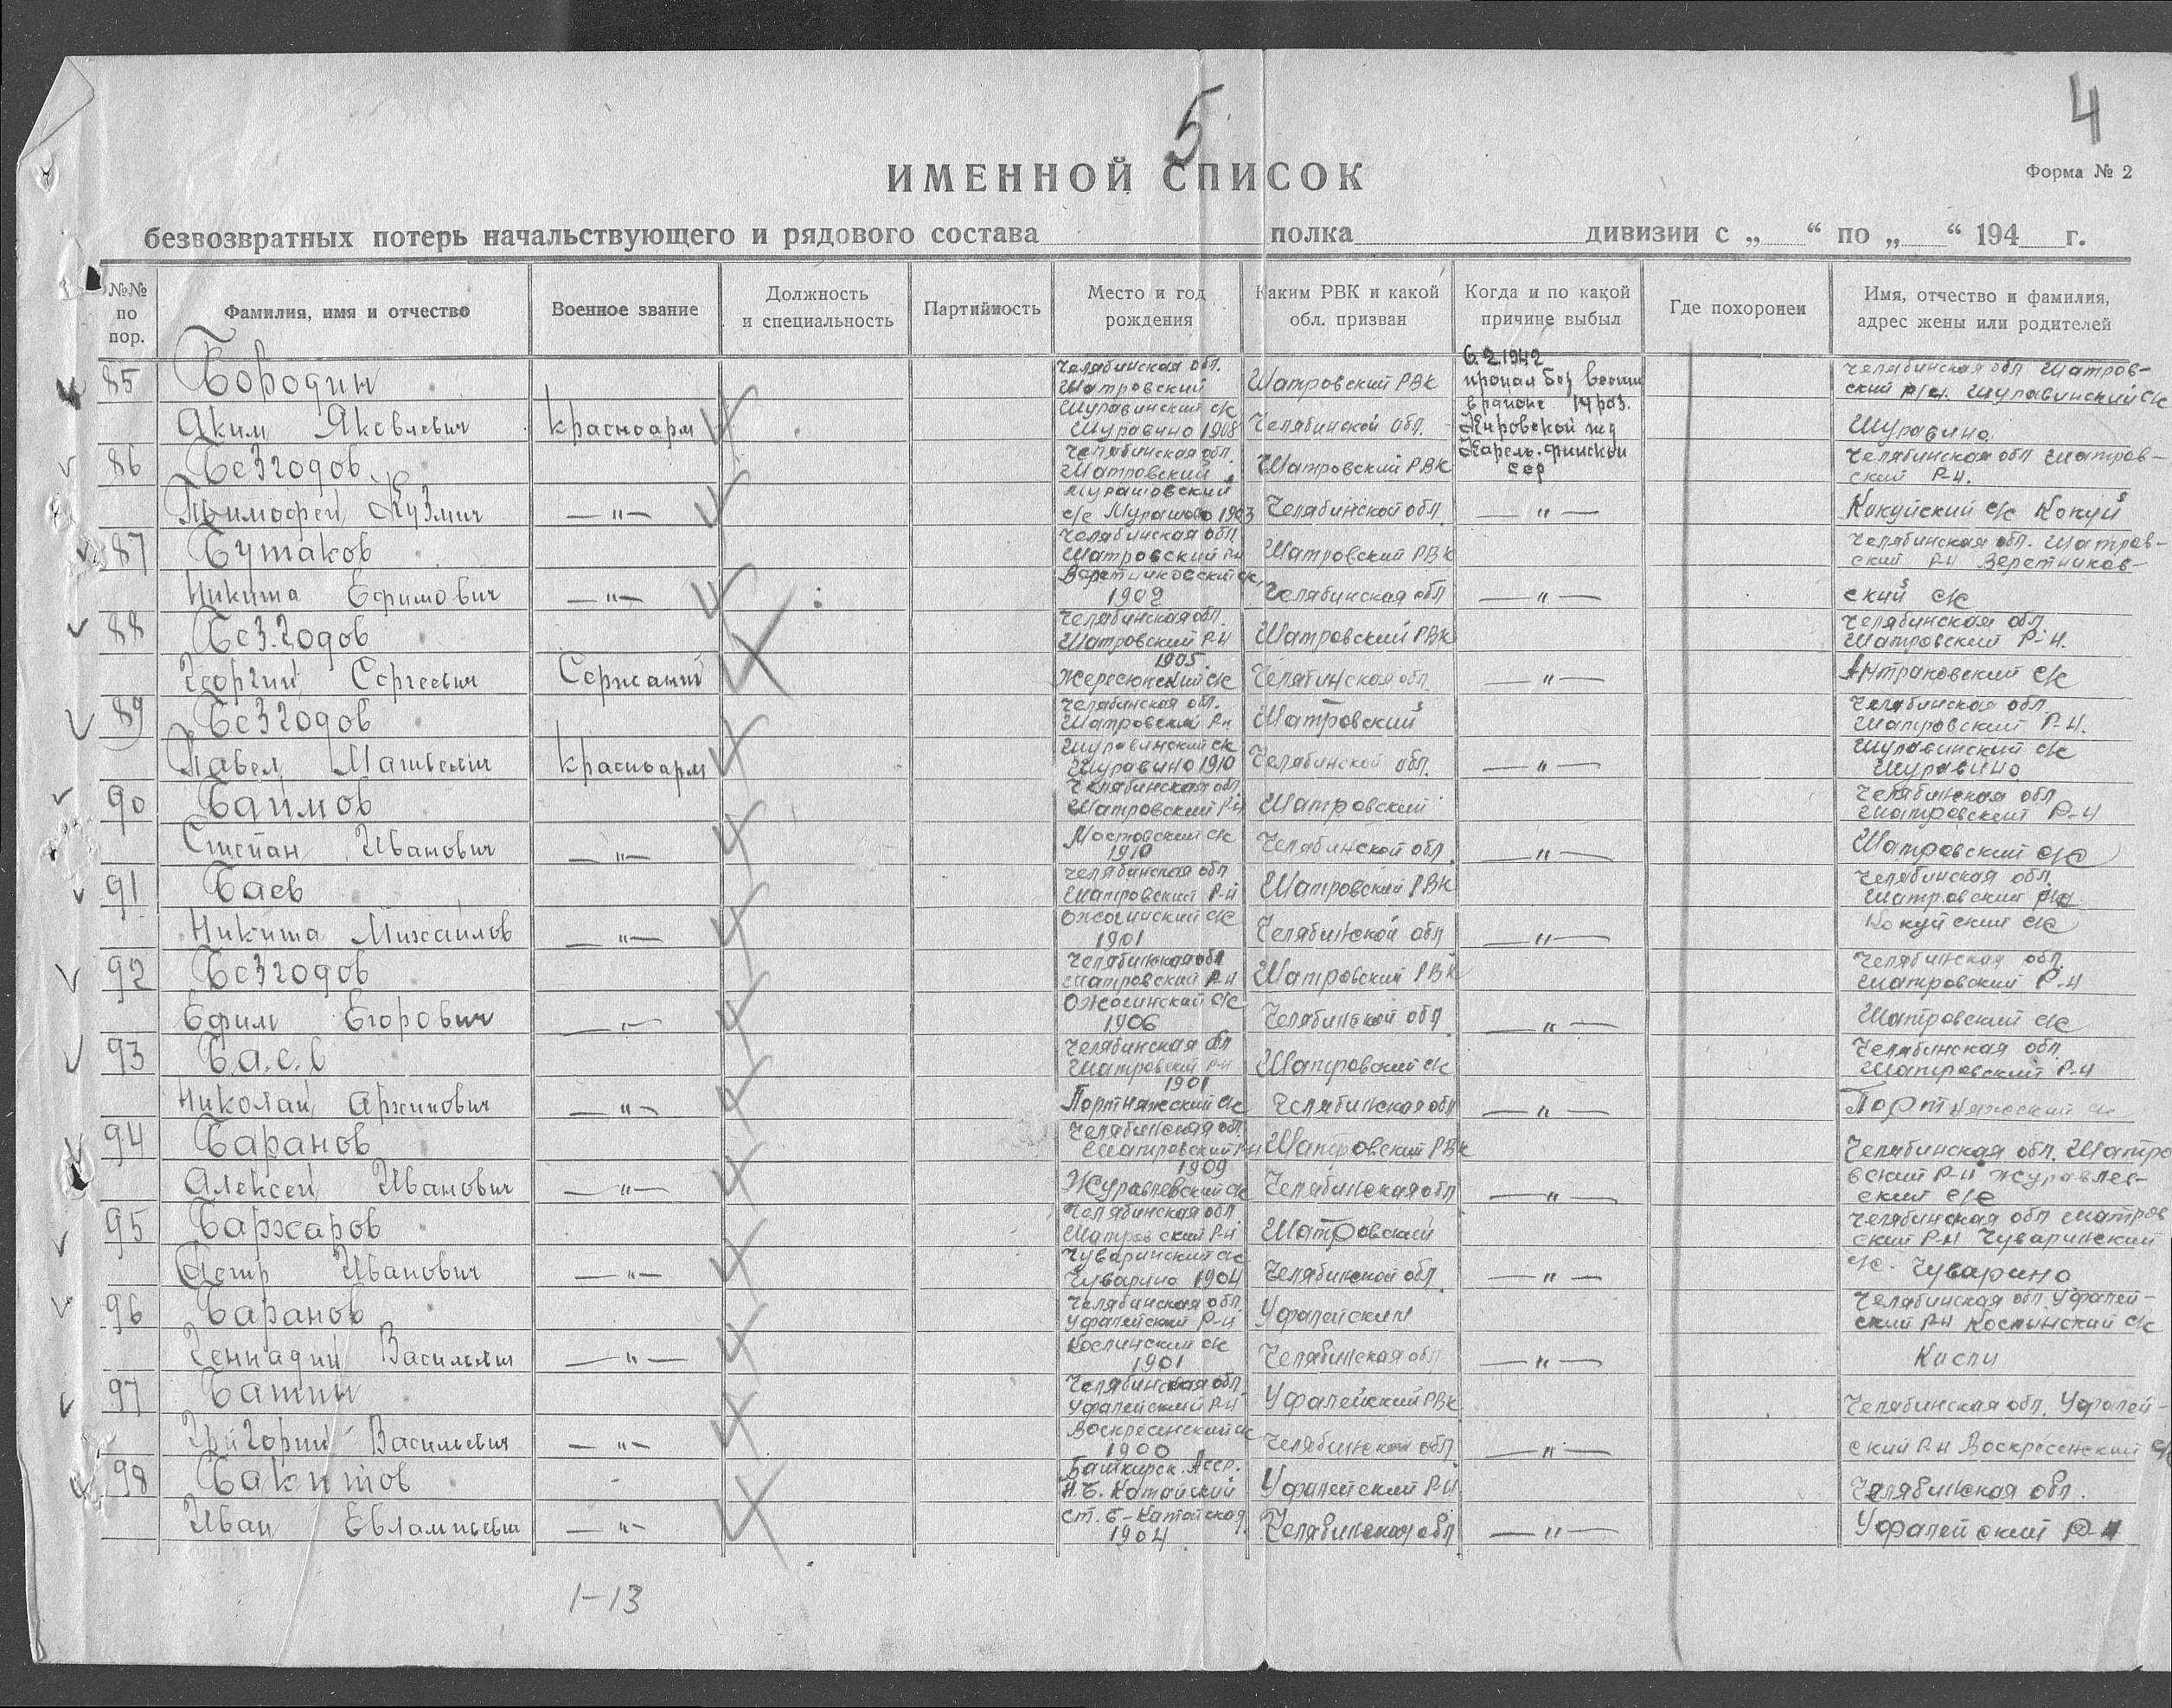 5
4
ИМЕННОЙ СПИСОК
Форма № 2
безвозвратных потерь начальствующего и рядового состава полка дивизии с „ “ по „ “ 194 г.
№№ по пор.
Фамилия, имя и отчество
Военное звание
Должность и специальность
Партийность
Место и год рождения
Каким РВК и какой обл. призван
Когда и по какой причине выбыл
Где похоронен
Имя, отчество и фамилия, адрес жены или родителей
85 Бородин
Аким Яковлевич
красноарм
Челябинская обл.
Шатровский
Шуравинский с/с
Шуравино 1908
Шатровский РВК
Челябинской обл.
6.2.1942
пропал без вести
в районе 14 раз.
Кировской жд
Карело-финской
сср
Челябинская обл Шатров-
ский р/н. Шуравинский с/с
Шуравино.
86 Безгодов
Тимофей Кузмич
— " —
Челябинская обл
Шатровский
Мурашовский
с/с Мурашово 1903
Шатровский РВК
Челябинской обл
— " —
Челябинская обл Шатров-
ский Р-н.
Кокуйский с/с Кокуй
87 Бутаков
Никита Ефимович
— " —
Челябинская обл
Шатровский Р-н
1902
Шатровский РВК
Челябинская обл
— " —
Челябинская обл. Шатров-
ский Р-н
ский с/с
88 Безгодов
Георгий Сергеевич
Сержант
Челябинская обл.
Шатровский Р-н
1905.
Шатровский РВК
Челябинская обл.
— " —
Челябинская обл
Шатровский Р-н.
Антраковский с/с
89 Безгодов
Павел Матвеевич
красноарм
Челябинская обл.
Шатровский Р-н
Шуравинский с/с
Шуравино 1910
Шатровский
Челябинской обл.
— " —
Челябинская обл
Шатровский Р-н.
Шуравинский с/с
Шуравино
90 Баимов
Степан Иванович
— " —
Челябинская обл
Шатровский Р-н
Мостовский с/с
1910
Шатровский
Челябинской обл
— " —
Челябинская обл
Шатровский Р-н
Шатровский с/с
91 Баев
Никита Михайлов
— " —
Челябинская обл
Шатровский Р-н
Ожогинский с/с
1901
Шатровский РВК
Челябинской обл
— " —
Челябинская обл.
Шатровский
Кокуйский с/с
92 Безгодов
Ефим Егорович
— " —
Челябинская обл
Шатровский Р-н
Ожогинский с/с
1906
Шатровский РВК
Челябинской обл
— " —
Челябинская обл.
Шатровский Р-н
Шатровский с/с
93 Баев
Николай Архипович
— " —
Челябинская обл
Шатровский Р-н
1901
Портняжский с/с
Шатровский с/с
Челябинская обл
— " —
Челябинская обл
Шатровский Р-н
Портняжский с/с
94 Баранов
Алексей Иванович
— " —
Челябинская обл.
Шатровский Р-н
1909
Журавлевский с/с
Шатровский РВК
Челябинская обл
— " —
Челябинская обл. Шатро
вский Р-н Журавлев-
ский с/с
95 Бархаров
Петр Иванович
— " —
Челябинская обл
Шатровский Р-н
Чуваринский с/с
Чуварино 1904
Шатровский
Челябинской обл
— " —
Челябинская обл Шатров
ский Р-н Чуваринский
с/с. Чуварино
96 Баранов
Геннадий Васильевич
— " —
Челябинская обл.
Уфалейский Р-н
Каслинский с/с
1901
Уфалейский
Челябинская обл
— " —
Челябинская обл Уфалей-
ский Р-н Каслинский с/с
Касли
97 Батин
Григорий Васильевич
— " —
Челябинская обл
Уфалейский Р-н
Воскресенский с/с
1900
Уфалейский РВК
Челябинской обл
— " —
Челябинская обл. Уфалей-
ский Р-н Воскресенский с/с
98 Бакитов
Иван Евлампиевич
— " —
Башкирск. Асср.
Н.Б. Катайский
ст. Б-Катайская
1904
Уфалейский Р-н
Челябинская обл
— " —
Челябинская обл.
Уфалейский Р-н
1-13